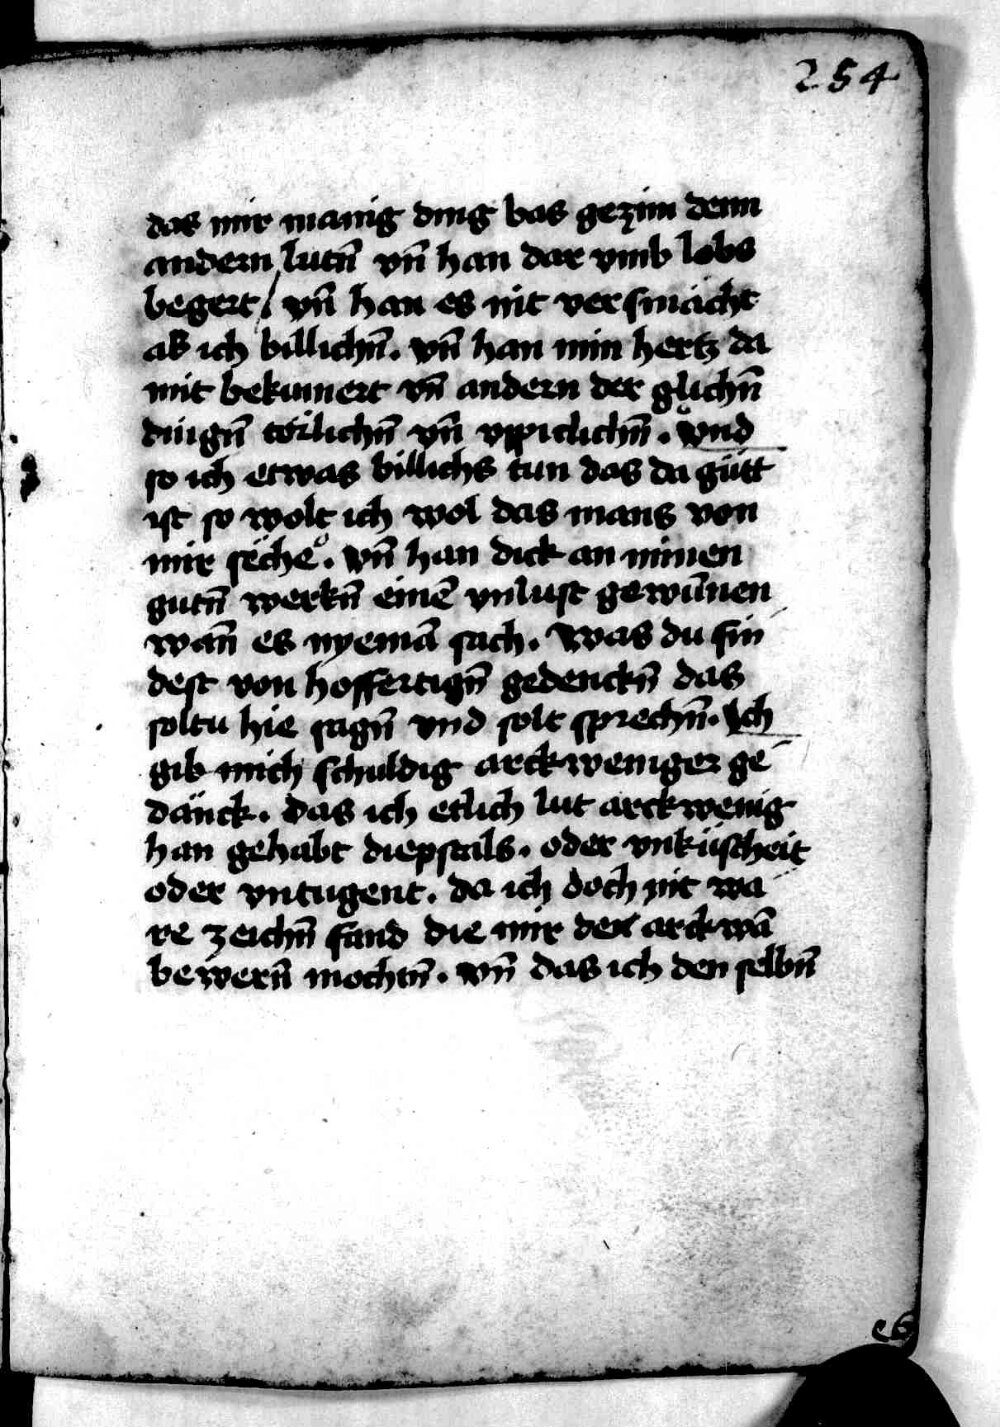 254
das mir manig ding bas gezim denn
andern lutn̄ vn̄ han dar vmb lobs
begert / vn̄ han es nit versmächt
als ich billichn̄. vn̄ han min hertz da
mit bekumert vn̄ andern der glichn̄
dingn̄ törlichn̄ vn̄ vppiclichn̄. vnd
so ich etwas billichs tun das da gütt
ist so wolt ich wol das mans von
mir seche. vn̄ han dick an minen
gutn̄ werkn̄ einē vnlust gewūnen
wan̄ es nyemā sach. was du fin
dest von hoffertign̄ gedenckn̄ das
soltu hie sagn̄ vnd solt sprechn̄. Ich
gib mich schuldig arckweniger ge
dänck. das ich etlich lut arckwenig
han gehabt diepstals. oder vnküscheit
oder vntugent. da ich doch nit wa
re zeichn̄ fand die mir den arckwā
bewern̄ mochtn̄. vn̄ das ich den selbn̄